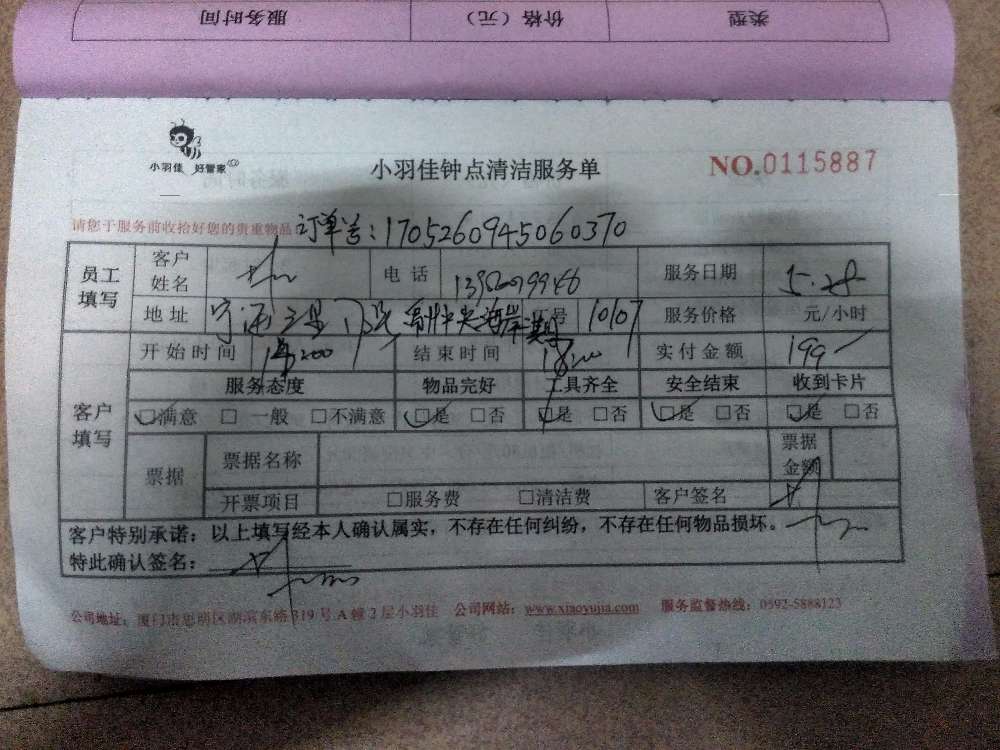 服务时间 价格（元） 类型
小羽佳 好管家
小羽佳钟点清洁服务单
NO.0115887
请您于服务前收拾好您的贵重物品
订单号：1705260945060370
员工填写 客户姓名 林 电话 服务日期 5.28
地址 号 10107 服务价格 元/小时
开始时间 结束时间 实付金额 199
服务态度 物品完好 工具齐全 安全结束 收到卡片
客户填写 满意 一般 不满意 是 否 是 否 是 否 是 否
票据 票据名称 票据金额
开票项目 服务费 清洁费 客户签名
客户特别承诺：以上填写经本人确认属实，不存在任何纠纷，不存在任何物品损坏。
特此确认签名：
公司地址：厦门市思明区湖滨东路319号A幢2层小羽佳 公司网站：www.xiaoyujia.com 服务监督热线：0592-5888123